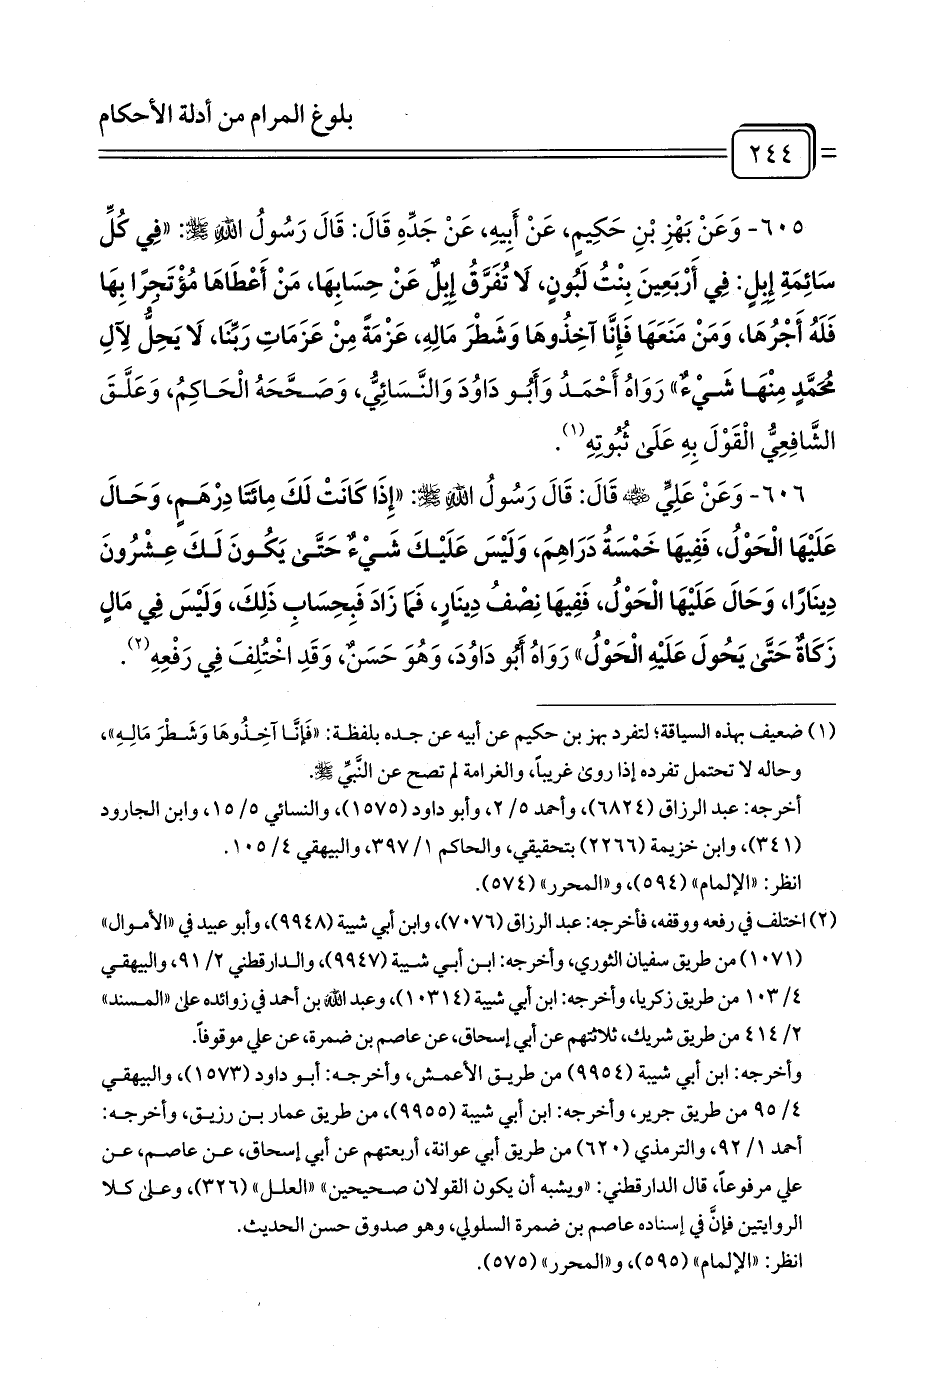 بلوغ المرام من أدلة الأحكام
٢٤٤
٦٠٥- وَعَنْ بَهْزِ بْنِ حَكِيمٍ، عَنْ أَبِيهِ، عَنْ جَدِّهِ قَالَ: قَالَ رَسُولُ اللهِ ﷺ: «فِي كُلِّ
سَائِمَةِ إِبِلٍ: فِي أَرْبَعِينَ بِنْتُ لَبُونٍ، لَا تُفَرَّقُ إِبِلٌ عَنْ حِسَابِهَا، مَنْ أَعْطَاهَا مُؤْتَجِرًا بِهَا
فَلَهُ أَجْرُهَا، وَمَنْ مَنَعَهَا فَإِنَّا آخِذُوهَا وَشَطْرَ مَالِهِ، عَزْمَةً مِنْ عَزَمَاتِ رَبِّنَا، لَا يَحِلُّ لِآلِ
مُحَمَّدٍ مِنْهَا شَيْءٌ» رَوَاهُ أَحْمَدُ وَأَبُو دَاوُدَ وَالنَّسَائِيُّ، وَصَحَّحَهُ الْحَاكِمُ، وَعَلَّقَ
الشَّافِعِيُّ الْقَوْلَ بِهِ عَلَىٰ ثُبُوتِهِ(١).
٦٠٦- وَعَنْ عَلِيٍّ ﵁ قَالَ: قَالَ رَسُولُ اللهِ ﷺ: «إِذَا كَانَتْ لَكَ مِائَتَا دِرْهَمٍ، وَحَالَ
عَلَيْهَا الْحَوْلُ، فَفِيهَا خَمْسَةُ دَرَاهِمَ، وَلَيْسَ عَلَيْكَ شَيْءٌ حَتَّىٰ يَكُونَ لَكَ عِشْرُونَ
دِينَارًا، وَحَالَ عَلَيْهَا الْحَوْلُ، فَفِيهَا نِصْفُ دِينَارٍ، فَمَا زَادَ فَبِحِسَابِ ذَلِكَ، وَلَيْسَ فِي مَالٍ
زَكَاةٌ حَتَّىٰ يَحُولَ عَلَيْهِ الْحَوْلُ» رَوَاهُ أَبُو دَاوُدَ، وَهُوَ حَسَنٌ، وَقَدِ اخْتُلِفَ فِي رَفْعِهِ(٢).
(١) ضعيف بهذه السياقة؛ لتفرد بهز بن حكيم عن أبيه عن جده بلفظة: «فَإِنَّا آخِذُوهَا وَشَطْرَ مَالِهِ»،
وحاله لا تحتمل تفرده إذا روىٰ غريباً، والغرامة لم تصح عن النَّبِيِّ ﷺ.
أخرجه: عبد الرزاق (٦٨٢٤)، وأحمد ٥/ ٢، وأبو داود (١٥٧٥)، والنسائي ٥/ ١٥، وابن الجارود
(٣٤١)، وابن خزيمة (٢٢٦٦) بتحقيقي، والحاكم ١/ ٣٩٧، والبيهقي ٤/ ١٠٥.
انظر: «الإلمام» (٥٩٤)، و«المحرر» (٥٧٤).
(٢) اختلف في رفعه ووقفه، فأخرجه: عبد الرزاق (٧٠٧٦)، وابن أبي شيبة (٩٩٤٨)، وأبو عبيد في «الأموال»
(١٠٧١) من طريق سفيان الثوري، وأخرجه: ابن أبي شيبة (٩٩٤٧)، والدارقطني ٢/ ٩١، والبيهقي
٤/ ١٠٣ من طريق زكريا، وأخرجه: ابن أبي شيبة (١٠٣١٤)، وعبد الله بن أحمد في زوائده علىٰ «المسند»
٢/ ٤١٤ من طريق شريك، ثلاثتهم عن أبي إسحاق، عن عاصم بن ضمرة، عن علي موقوفاً.
وأخرجه: ابن أبي شيبة (٩٩٥٤) من طريق الأعمش، وأخرجه: أبو داود (١٥٧٣)، والبيهقي
٤/ ٩٥ من طريق جرير، وأخرجه: ابن أبي شيبة (٩٩٥٥)، من طريق عمار بن رزيق، وأخرجه:
أحمد ١/ ٩٢، والترمذي (٦٢٠) من طريق أبي عوانة، أربعتهم عن أبي إسحاق، عن عاصم، عن
علي مرفوعاً، قال الدارقطني: «ويشبه أن يكون القولان صحيحين» «العلل» (٣٢٦)، وعلىٰ كلا
الروايتين فإنَّ في إسناده عاصم بن ضمرة السلولي، وهو صدوق حسن الحديث.
انظر: «الإلمام» (٥٩٥)، و«المحرر» (٥٧٥).